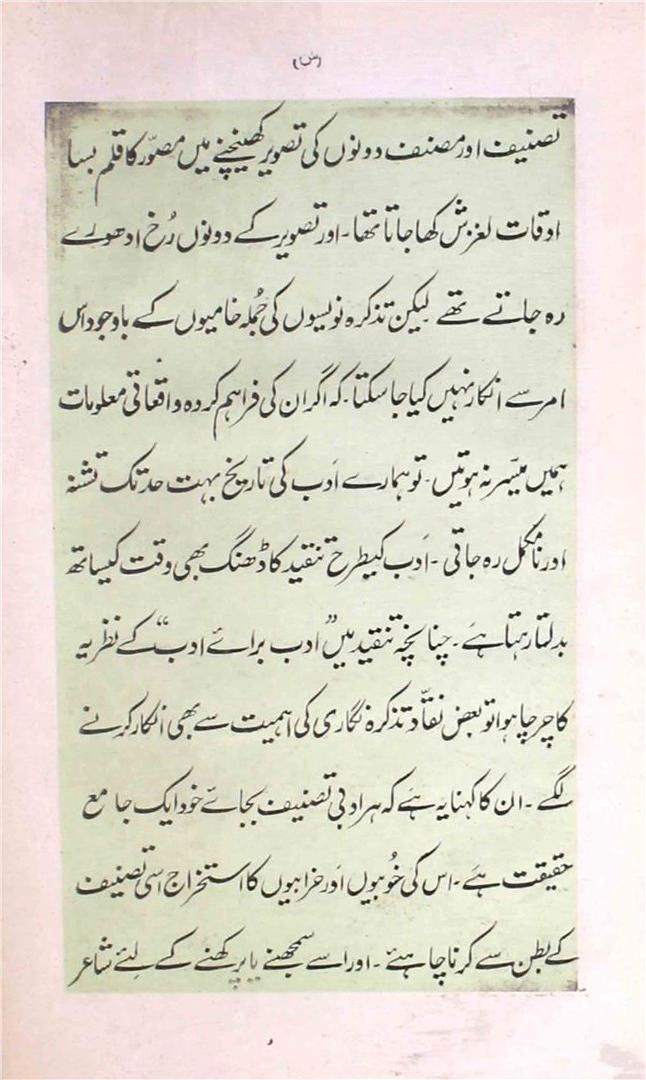 (س)
تصنیف اور مصنف دونوں کی تصویر کھینچنے میں مصوّر کا قلم بسا
اوقات لغزش کھا جاتا تھا۔ اور تصویر کے دونوں رُخ ادھورے
رہ جاتے تھے لیکن تذکرہ نویسوں کی جُملہ خامیوں کے باوجود اس
امر سے انکار نہیں کیا جا سکتا۔ کہ اگر ان کی فراہم کردہ واقعاتی معلومات
ہمیں میسّر نہ ہوتیں۔ تو ہمارے اَدب کی تاریخ بہت حد تک تشنہ
اور نامکمل رہ جاتی۔ اَدب کیطرح تنقید کا ڈھنگ بھی وقت کیساتھ
بدلتا رہتا ہے۔ چنانچہ تنقید میں ”ادب برائے ادب“ کے نظریہ
کا چرچا ہوا تو بعض نقّاد تذکرہ نگاری کی اہمیت سے بھی انکار کرنے
لگے۔ ان کا کہنا یہ ہے کہ ہر ادبی تصنیف بجائے خود ایک جامع
حقیقت ہے۔ اس کی خُوبیوں اَور خرابیوں کا استخراج اسی تصنیف
کے بطن سے کرنا چاہئے۔ اور اسے سمجھنے یا پرکھنے کے لئے شاعر